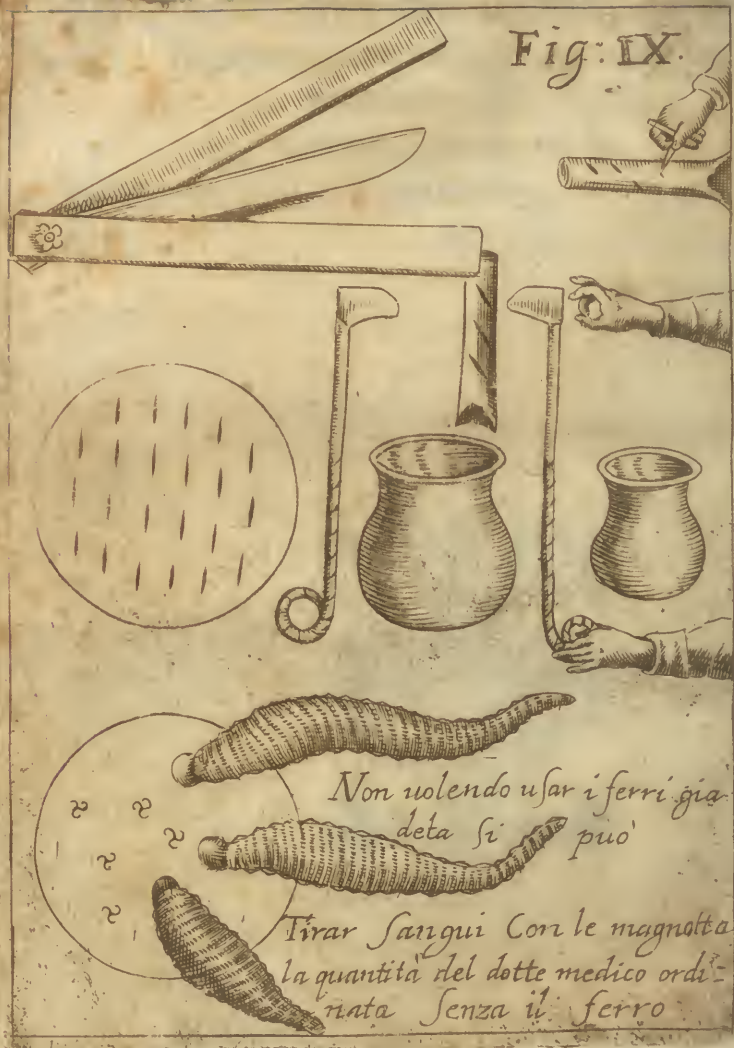 Fig: IX.
Non uolendo uſar i ferri gia
deta ſi può
Tirar Sangui Con le magnotta
la quantità del dotte medico ordi=
nata Senza il ferro